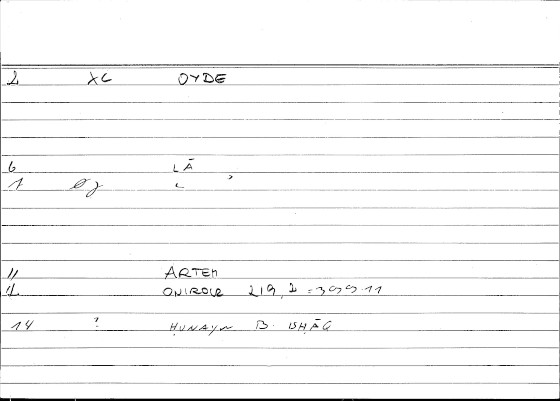 2 XL OYDE
6 LĀ
1
11 ARTEM
ONIROCR 219, 2 = 399.11
14 ? ḤUNAYN B. ISḤĀQ